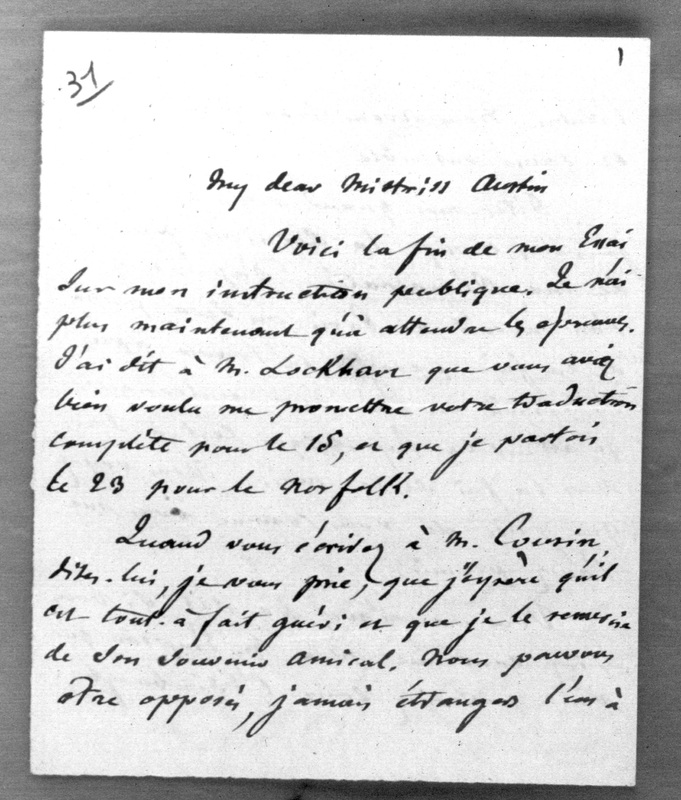 31
1
My dear Mistriss Austin
Voici la fin de mon Essai
sur mon instruction publique. Je n'ai
plus maintenant qu'à attendre les épreuves.
J'ai dit à M. Lockhart que vous aviez
bien voulu me promettre votre traduction
complète pour le 15, et que je partois
le 23 pour le Norfolk.
Quand vous écrivez à M. Cousin,
dites-lui, je vous prie, que j'espère qu'il
est tout-à-fait guéri et que je le remercie
de son souvenir amical. Nous pouvons
être opposés, jamais étrangers l'un à